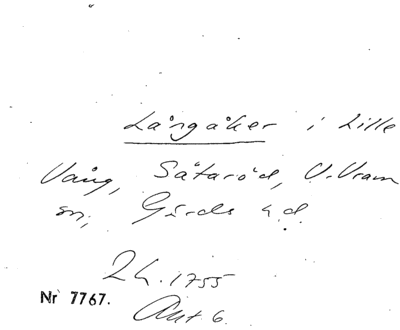 Långåker i Lille
Vång, Sätaröd, V. Vram
sn, Gärds hd.
LL. 1755
Akt 6.
Nr 7767.